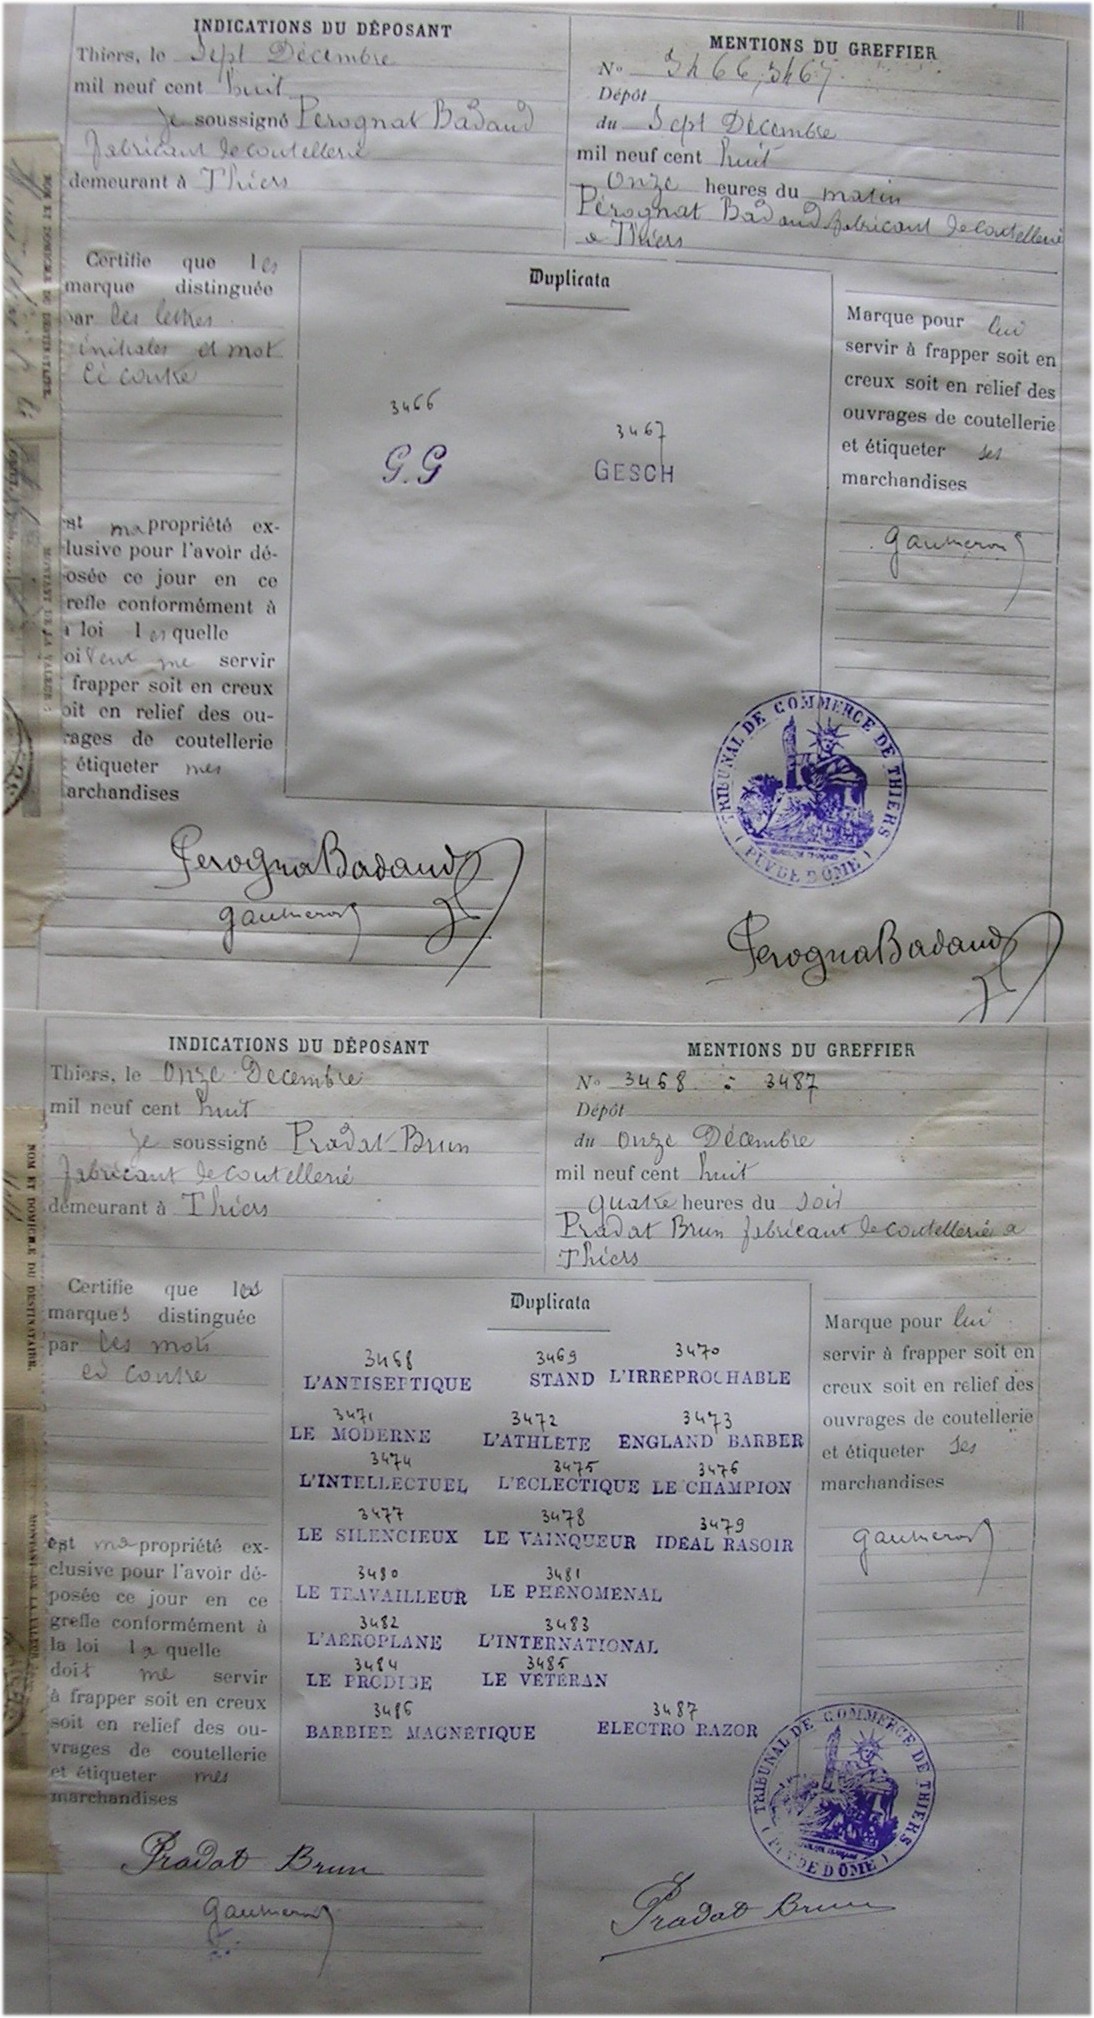 INDICATIONS DU DÉPOSANT
Thiers, le Sept Décembre
mil neuf cent huit
Je soussigné Pérognat Badaud
fabricant de coutellerie
demeurant à Thiers
MENTIONS DU GREFFIER
No 3466, 3467
Dépôt
du Sept Décembre
mil neuf cent huit
Onze heures du matin
Pérognat Badaud fabricant de coutellerie
a Thiers
Certifie que les
marque distinguée
par les lettres
initiales et mot
ci contre
est ma propriété ex-
lusive pour l'avoir dé-
osée ce jour en ce
refle conformément à
a loi les quelle
oivent me servir
frapper soit en creux
oit en relief des ou-
rages de coutellerie
étiqueter mes
archandises
Duplicata
3466
G.G
3467
GESCH
Marque pour lui
servir à frapper soit en
creux soit en relief des
ouvrages de coutellerie
et étiqueter ses
marchandises
Gaumeron
TRIBUNAL DE COMMERCE DE THIERS
(PUY DE DÔME)
PerognaBadaud
Gaumeron
PerognaBadaud
NOM ET DOMICILE DU DESTINATAIRE.
MONTANT DE LA VALEUR
INDICATIONS DU DÉPOSANT
Thiers, le Onze Decembre
mil neuf cent huit
Je soussigné Pradat-Brun
fabricant de coutellerie
demeurant à Thiers
MENTIONS DU GREFFIER
No 3468 à 3487
Dépôt
du Onze Décembre
mil neuf cent huit
Quatre heures du soir
Pradat Brun fabricant de coutellerie a
Thiers
Certifie que les
marques distinguée
par les mots
ci contre
est ma propriété ex-
clusive pour l'avoir dé-
posée ce jour en ce
grefle conformément à
la loi la quelle
doit me servir
à frapper soit en creux
soit en relief des ou-
vrages de coutellerie
et étiqueter mes
marchandises
Duplicata
3468 3469 3470
L'ANTISEPTIQUE STAND L'IRRÉPROCHABLE
3471 3472 3473
LE MODERNE L'ATHLÈTE ENGLAND BARBER
3474 3475 3476
L'INTELLECTUEL L'ÉCLECTIQUE LE CHAMPION
3477 3478 3479
LE SILENCIEUX LE VAINQUEUR IDÉAL RASOIR
3480 3481
LE TRAVAILLEUR LE PHÉNOMÉNAL
3482 3483
L'AÉROPLANE L'INTERNATIONAL
3484 3485
LE PRODIGE LE VÉTÉRAN
3486 3487
BARBIER MAGNÉTIQUE ELECTRO RAZOR
Marque pour lui
servir à frapper soit en
creux soit en relief des
ouvrages de coutellerie
et étiqueter ses
marchandises
Gaumeron
TRIBUNAL DE COMMERCE DE THIERS
(PUY DE DÔME)
Pradat Brun
Gaumeron
Pradat Brun
NOM ET DOMICILE DU DESTINATAIRE.
MONTANT DE LA VALEUR